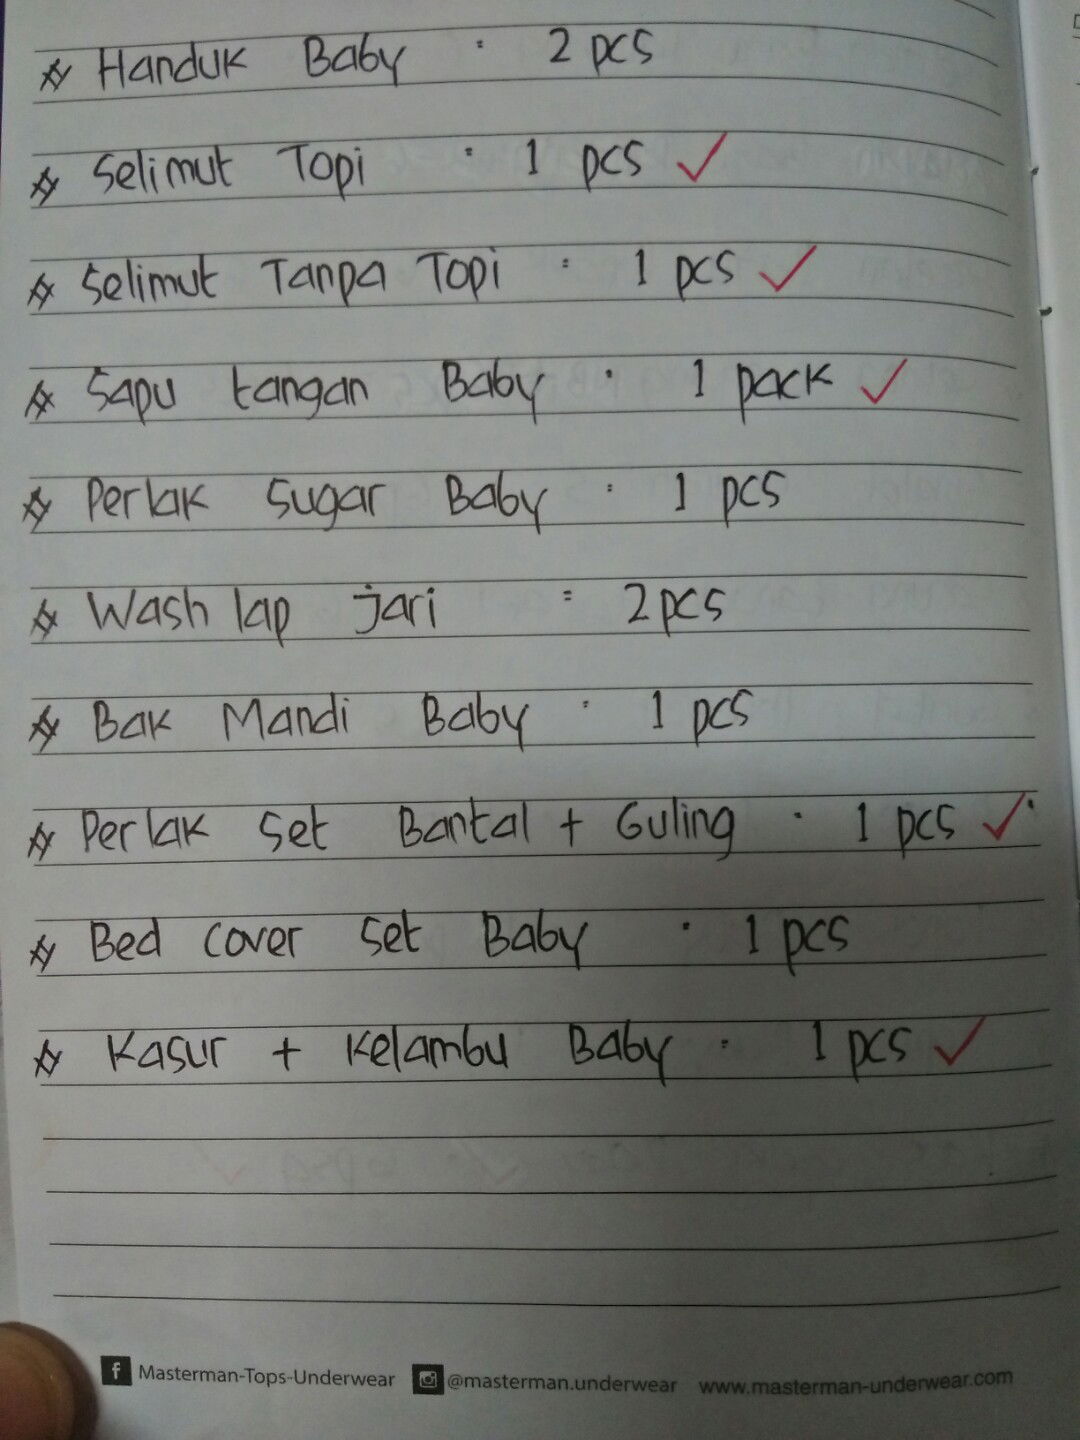 Handuk Baby : 2 pcs
Selimut Topi : 1 pcs ✓
Selimut Tanpa Topi : 1 pcs ✓
Sapu tangan Baby : 1 pack ✓
Perlak Sugar Baby : 1 pcs
Wash lap jari : 2 pcs
Bak Mandi Baby : 1 pcs
Perlak set Bantal + Guling : 1 pcs ✓
Bed cover set Baby : 1 pcs
Kasur + Kelambu Baby : 1 pcs ✓
Masterman-Tops-Underwear @masterman.underwear www.masterman-underwear.com